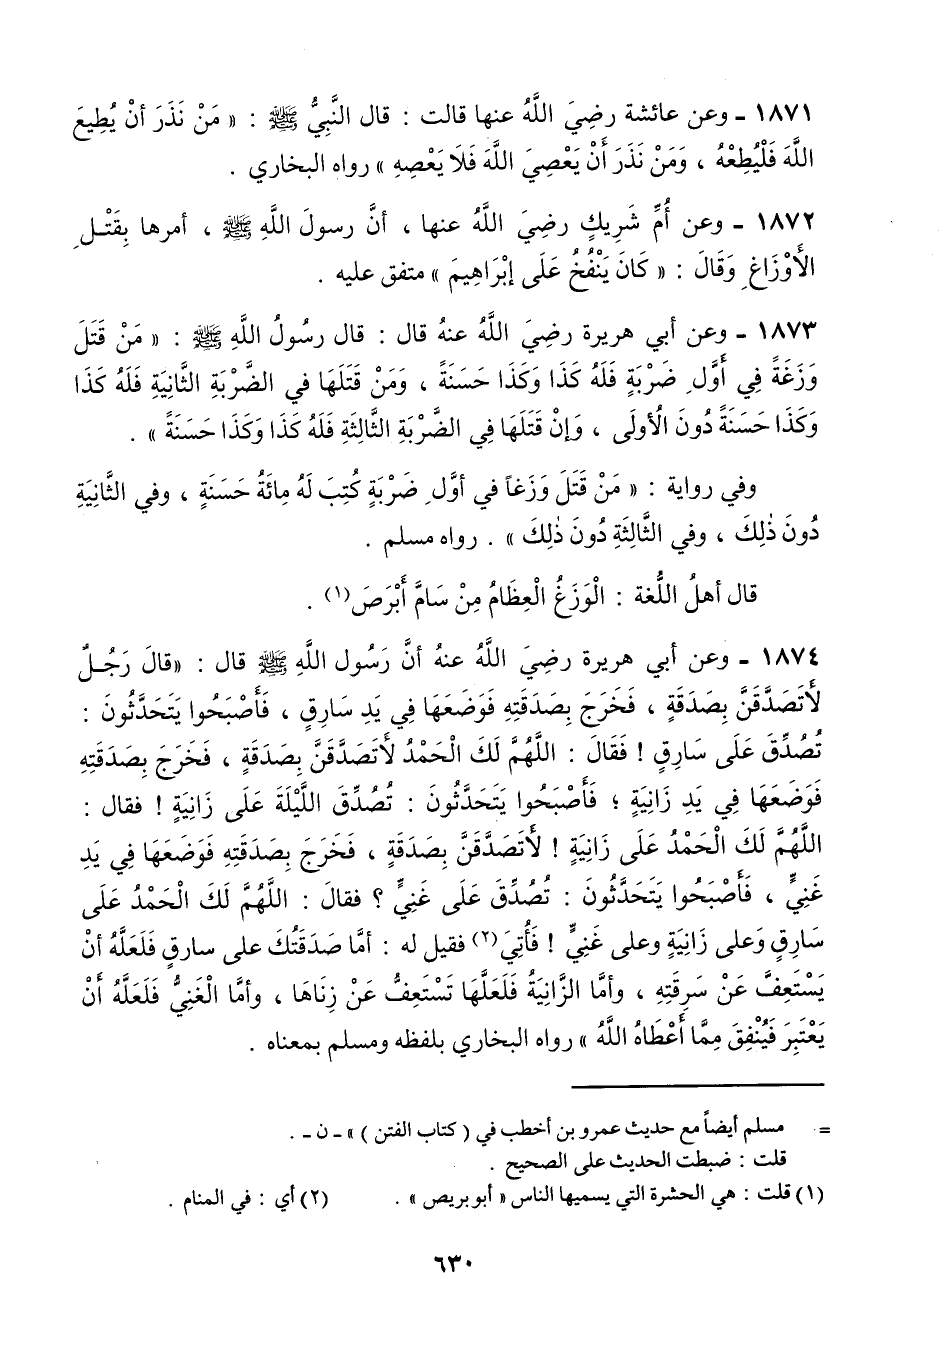 ١٨٧١ ـ وعن عائشة رضِيَ اللَّهُ عنها قالت : قال النَّبِيُّ ﷺ : « مَنْ نَذَرَ أنْ يُطِيعَ
اللَّهَ فَلْيُطِعْهُ ، وَمَنْ نَذَرَ أَنْ يَعْصِيَ اللَّهَ فَلَا يَعْصِهِ » رواه البخاري .
١٨٧٢ ـ وعن أُمِّ شَرِيكٍ رضِيَ اللَّهُ عنها ، أنَّ رسولَ اللَّهِ ﷺ ، أمرها بِقَتْلِ
الأَوْزَاغِ وَقَالَ : « كَانَ يَنْفُخُ عَلَى إبْرَاهِيمَ » متفق عليه .
١٨٧٣ ـ وعن أبي هريرة رضِيَ اللَّهُ عنهُ قال : قال رسُولُ اللَّهِ ﷺ : « مَنْ قَتَلَ
وَزَغَةً فِي أَوَّلِ ضَرْبَةٍ فَلَهُ كَذَا وَكَذَا حَسَنَةً ، وَمَنْ قَتَلَهَا في الضَّرْبَةِ الثَّانِيَةِ فَلَهُ كَذَا
وَكَذَا حَسَنَةً دُونَ الْأُولَى ، وَإنْ قَتَلَهَا فِي الضَّرْبَةِ الثَّالِثَةِ فَلَهُ كَذَا وَكَذَا حَسَنَةً » .
وفي رواية : « مَنْ قَتَلَ وَزَغاً في أوَّلِ ضَرْبَةٍ كُتِبَ لَهُ مِائَةُ حَسَنَةٍ ، وفي الثَّانِيَةِ
دُونَ ذٰلِكَ ، وفي الثَّالِثَةِ دُونَ ذٰلِكَ » . رواه مسلم .
قال أهلُ اللُّغة : الْوَزَغُ الْعِظَامُ مِنْ سَامَّ أَبْرَصَ(١) .
١٨٧٤ ـ وعن أبي هريرة رضِيَ اللَّهُ عنهُ أنَّ رَسُول اللَّهِ ﷺ قال : «قالَ رَجُلٌ
لأَتَصَدَّقَنَّ بِصَدَقَةٍ ، فَخَرَجَ بِصَدَقَتِهِ فَوَضَعَهَا فِي يَدِ سَارِقٍ ، فَأَصْبَحُوا يَتَحَدَّثُونَ :
تُصُدِّقَ عَلَى سَارِقٍ ! فَقَالَ : اللَّهُمَّ لَكَ الْحَمْدُ لأَتَصَدَّقَنَّ بِصَدَقَةٍ ، فَخَرَجَ بِصَدَقَتِهِ
فَوَضَعَهَا فِي يَدِ زَانِيَةٍ ؛ فَأَصْبَحُوا يَتَحَدَّثُونَ : تُصُدِّقَ اللَّيْلَةَ عَلَى زَانِيَةٍ ! فقال :
اللَّهُمَّ لَكَ الْحَمْدُ عَلَى زَانِيَةٍ ! لأَتَصَدَّقَنَّ بِصَدَقَةٍ ، فَخَرَجَ بِصَدَقَتِهِ فَوَضَعَهَا فِي يَدِ
غَنِيٍّ ، فَأَصْبَحُوا يَتَحَدَّثُونَ : تُصُدِّقَ عَلَى غَنِيٍّ ؟ فقالَ : اللَّهُمَّ لَكَ الْحَمْدُ عَلَى
سَارِقٍ وَعلى زَانِيَةٍ وعلى غَنِيٍّ ! فَأُتِيَ(٢) فقيل له : أمَّا صَدَقَتُكَ على سارقٍ فَلَعَلَّهُ أنْ
يَسْتَعِفَّ عَنْ سَرِقَتِهِ ، وأمَّا الزَّانِيَةُ فَلَعَلَّهَا تَسْتَعِفُّ عَنْ زِنَاهَا ، وأمَّا الْغَنِيُّ فَلَعَلَّهُ أَنْ
يَعْتَبِرَ فَيُنْفِقَ مِمَّا أَعْطَاهُ اللَّهُ » رواه البخاري بلفظه ومسلم بمعناه .
= مسلم أيضاً مع حديث عمرو بن أخطب في ( كتاب الفتن ) » ـ ن ـ .
قلت : ضبطت الحديث على الصحيح .
(١) قلت : هي الحشرة التي يسميها الناس « أبو بريص » . (٢) أي : في المنام .
٦٣٠